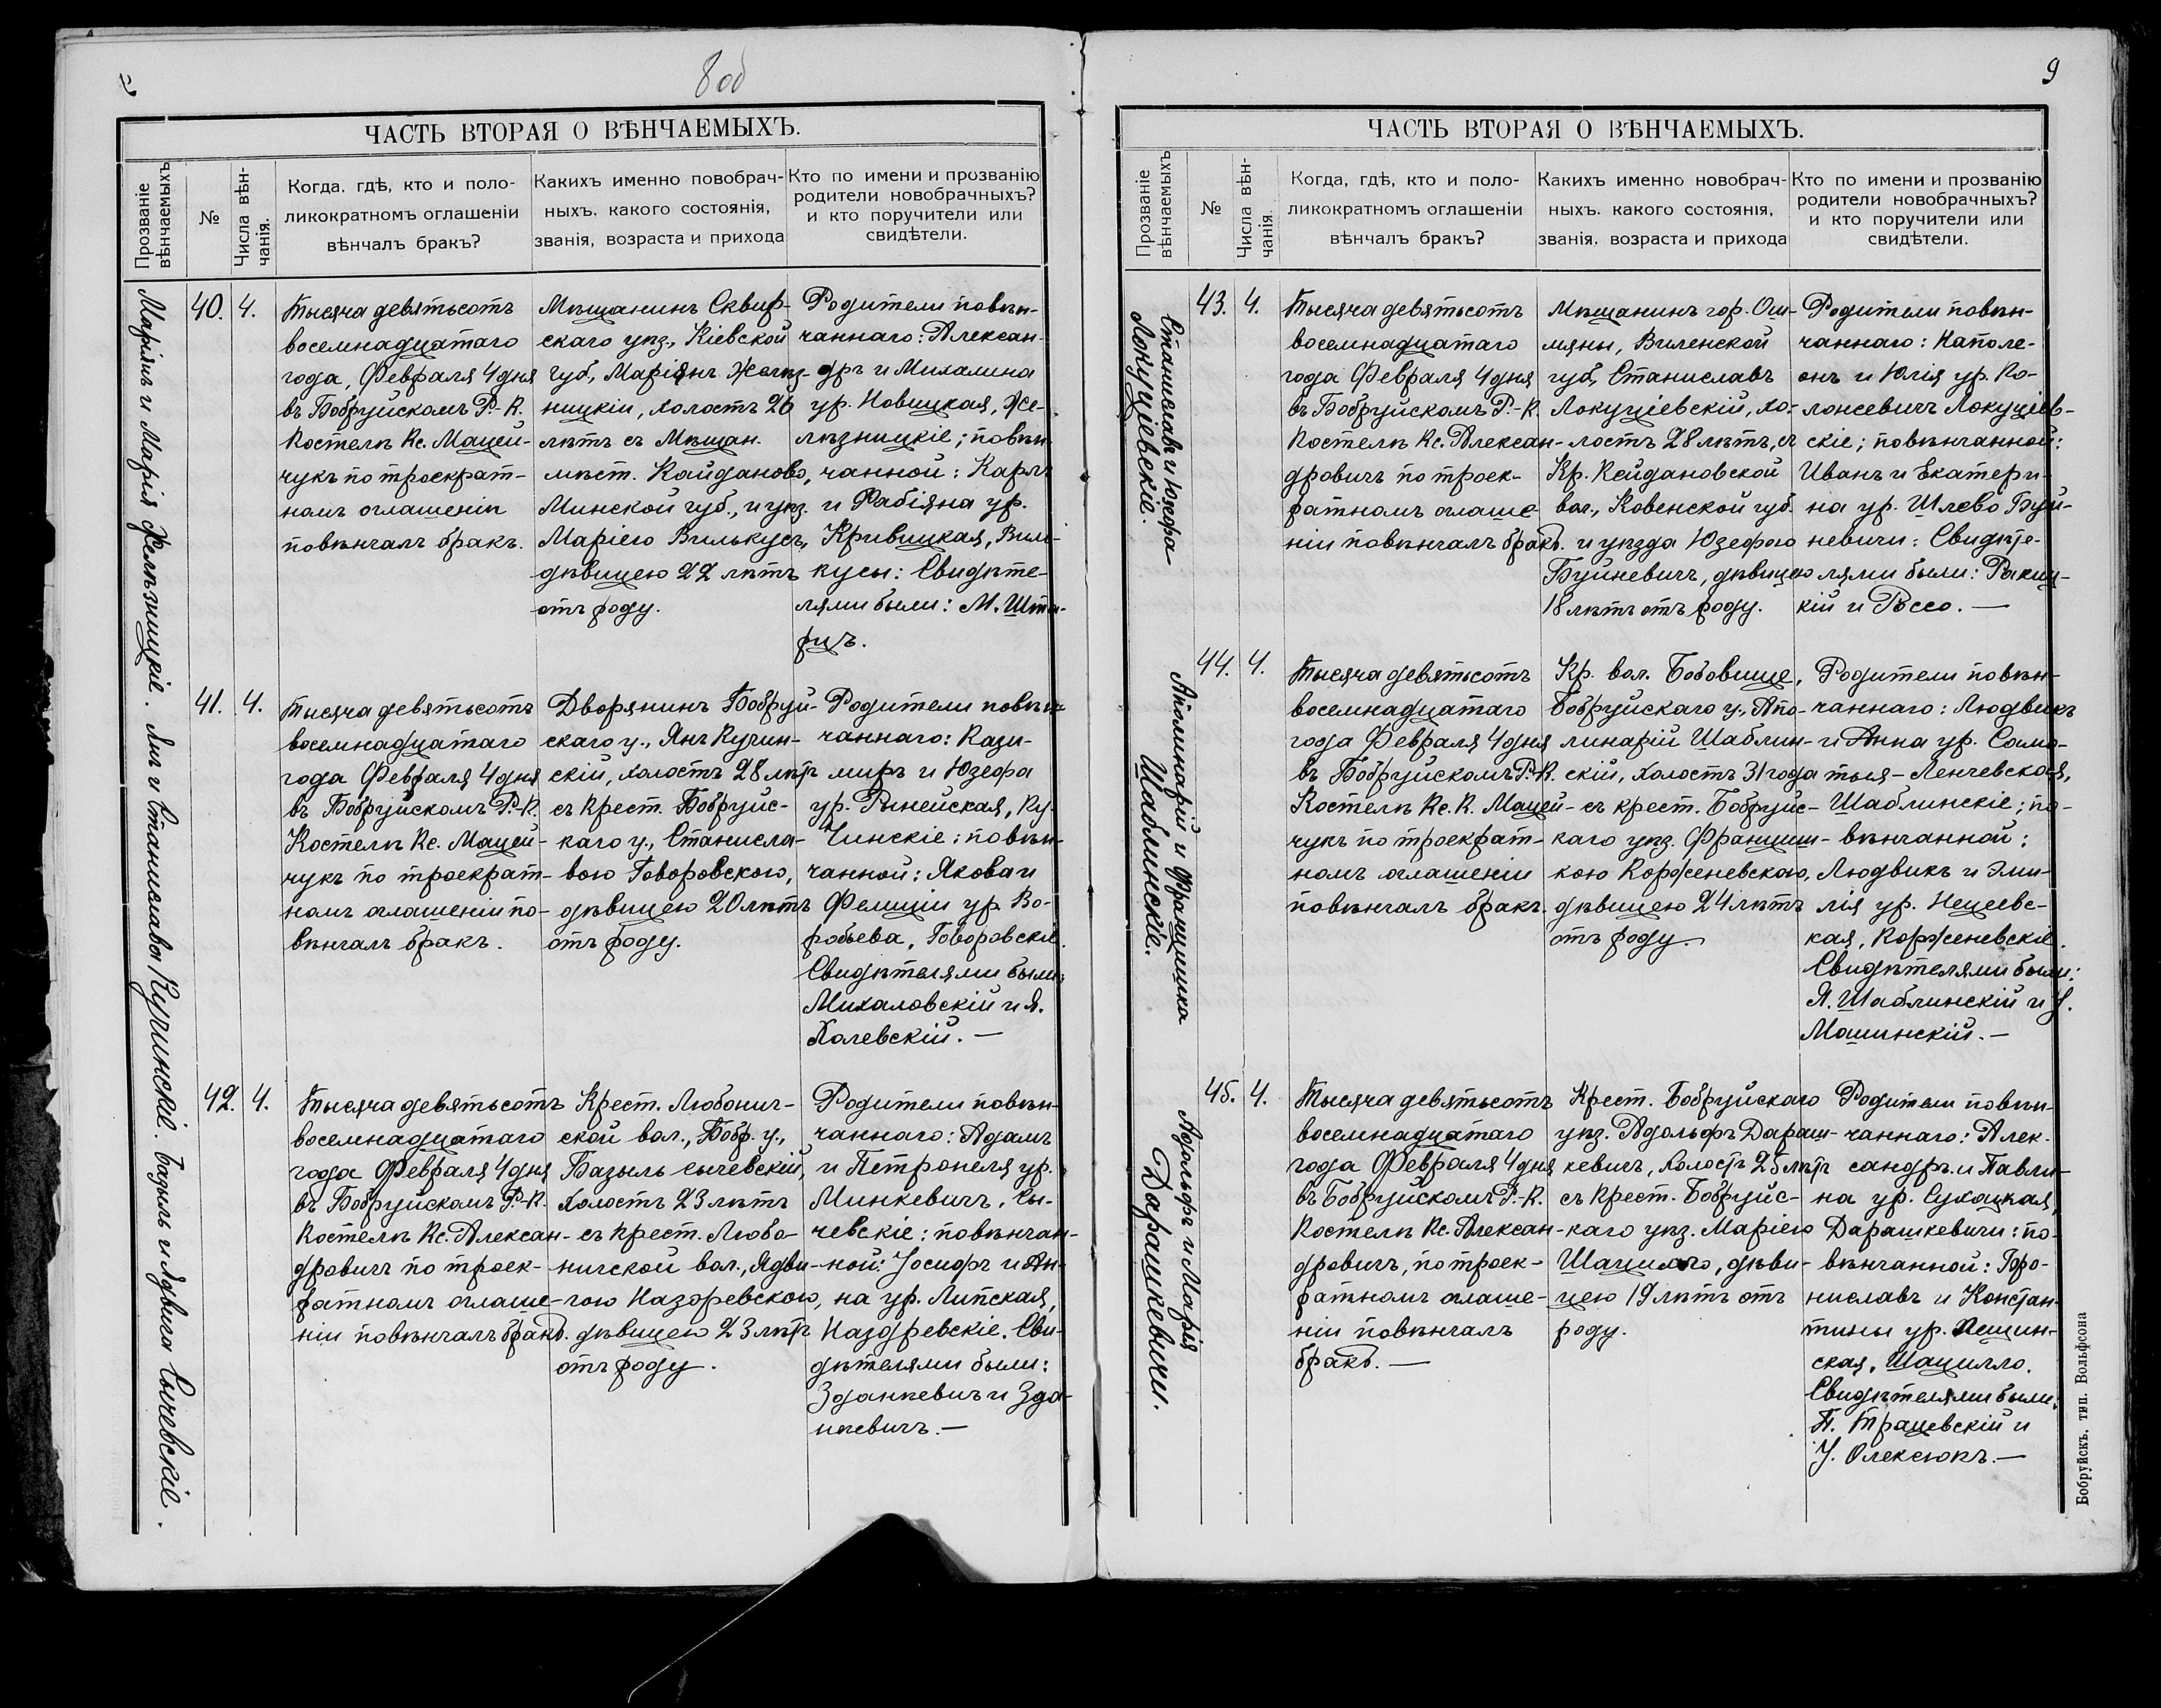 8 об
ЧАСТЬ ВТОРАЯ О ВѢНЧАЕМЫХЪ.
Прозваніе вѣнчаемыхъ
№
Числа вѣнчанія.
Когда, гдѣ, кто и поло-
ликократномъ оглашеніи
вѣнчалъ бракъ?
Какихъ именно новобрач-
ныхъ, какого состоянія,
званія, возраста и прихода
Кто по имени и прозванію
родители новобрачныхъ?
и кто поручители или
свидѣтели.
Маріянъ и Марія Желѣзницкіе.
40.
4.
Тысяча девятьсотъ
восемнадцатаго
года, Февраля 4 дня
въ Бобруйскомъ Р.-К.
Костелѣ Кс. Мацей-
чукъ по троекрат-
номъ оглашеніи
повѣнчалъ бракъ.
Мѣщанинъ Сквир-
скаго уѣз., Кіевской
губ., Маріянъ Желѣз-
ницкіи, холостъ 26
лѣтъ съ Мѣщан.
мѣст. Койданово,
Минской губ., и уѣз.
Маріею Вилькусъ,
дѣвицею 22 лѣтъ
отъ роду.
Родители повѣн-
чаннаго: Алексан-
дръ и Михалина
ур. Новицкая, Же-
лѣзницкіе; повѣн-
чанной: Карлъ
и Фабіяна ур.
Кривицкая, Виль-
кусы: Свидѣте-
лями были: М. Шта-
рцъ.
Янъ и Станислава Кучинскіе.
41.
4.
Тысяча девятьсотъ
восемнадцатаго
года Февраля 4 дня
въ Бобруйскомъ Р.-К.
Костелѣ Кс. Мацей-
чукъ по троекрат-
номъ оглашеніи по-
вѣнчалъ бракъ.
Дворянинъ Бобруй-
скаго у., Янъ Кучин-
скій, холостъ 28 лѣтъ
съ крест. Бобруйс-
каго у., Станисла-
вою Говоровскою,
дѣвицею 20 лѣтъ
отъ роду.
Родители повѣн-
чаннаго: Кази-
миръ и Юзефа
ур. Рынейская, Ку-
чинскіе; повѣн-
чанной: Якова и
Фелиціи ур. Во-
робьева, Говоровскіе.
Свидѣтелями были:
Михаловскій и Я.
Холевскій. —
Базыль и Ядвига Сычевскіе.
42.
4.
Тысяча девятьсотъ
восемнадцатаго
года Февраля 4 дня
въ Бобруйскомъ Р.-К.
Костелѣ Кс. Алексан-
дровичъ по троек-
ратномъ оглаше-
ніи повѣнчалъ бракъ.
Крест. Любонич-
ской вол., Бобр. у.,
Базыль Сычевскій,
холостъ 23 лѣтъ
съ крест. Любо-
ничской вол., Ядви-
гою Наздревскою,
дѣвицею 23 лѣтъ
отъ роду.
Родители повѣн-
чаннаго: Адамъ
и Петронеля ур.
Минкевичъ, Сы-
чевскіе: повѣнчан-
ной: Іосифъ и Ан-
на ур. Липская,
Наздревскіе. Сви-
дѣтелями были:
Зданкевичъ и Зда-
нкевичъ. —
9
ЧАСТЬ ВТОРАЯ О ВѢНЧАЕМЫХЪ.
Прозваніе вѣнчаемыхъ
№
Числа вѣнчанія.
Когда, гдѣ, кто и поло-
ликократномъ оглашеніи
вѣнчалъ бракъ?
Какихъ именно новобрач-
ныхъ, какого состоянія,
званія, возраста и прихода
Кто по имени и прозванію
родители новобрачныхъ?
и кто поручители или
свидѣтели.
Станиславъ и Юзефа
Локуціевскіе.
43.
4.
Тысяча девятьсотъ
восемнадцатаго
года Февраля 4 дня
въ Бобруйскомъ Р.-К.
Костелѣ Кс. Алексан-
дровичъ по троек-
ратномъ оглаше-
ніи повѣнчалъ бракъ.
Мѣщанинъ гор. Ош-
мяны, Виленской
губ., Станиславъ
Локуціевскій, хо-
лостъ 28 лѣтъ, съ
Кр. Кейдановской
вол., Ковенской губ.
и уѣзда Юзефою
Буйневичъ, дѣвицею
18 лѣтъ отъ роду.
Родители повѣн-
чаннаго: Наполе-
онъ и Юлія ур. Ко-
лонсевичъ Локуціев-
скіе; повѣнчанной:
Иванъ и Екатери-
на ур. Шлево Буй-
невичи: Свидѣте-
лями были: Ракиц-
кій и Россо. —
Аполинарій и Францишка
Шаблинскіе.
44.
4.
Тысяча девятьсотъ
восемнадцатаго
года Февраля 4 дня
въ Бобруйскомъ Р.-К.
Костелѣ Кс. К. Мацей-
чукъ по троекрат-
номъ оглашеніи
повѣнчалъ бракъ.
Кр. вол. Бобовище,
Бобруйскаго у., Апо-
линарій Шаблин-
скій, холостъ 31 года
съ крест. Бобруйс-
каго уѣз. Францииш-
кою Корженевскою,
дѣвицею 24 лѣтъ
отъ роду.
Родители повѣн-
чаннаго: Людвикъ
и Анна ур. Само-
тыя-Ленчевская,
Шаблинскіе; по-
вѣнчанной:
Людвикъ и Эми-
лія ур. Нецеевс-
кая, Корженевскіе.
Свидѣтелями были:
Я. Шаблинскій и У.
Машинскій. —
Адольфъ и Марія
Дарашкевичи.
45.
4.
Тысяча девятьсотъ
восемнадцатаго
года Февраля 4 дня
въ Бобруйскомъ Р.-К.
Костелѣ Кс. Алексан-
дровичъ, по троек-
ратномъ оглаше-
ніи повѣнчалъ
бракъ. —
Крест. Бобруйскаго
уѣз. Адольфъ Дараш-
кевичъ, холостъ 25 лѣтъ
съ крест. Бобруйс-
каго уѣз. Маріею
Шацилло, дѣви-
цею 19 лѣтъ отъ
роду.
Родители повѣн-
чаннаго: Алек-
сандръ и Павли-
на ур. Сухоцкая,
Дарашкевичи: по-
вѣнчанной: Бро-
ниславъ и Констан-
тины ур. Лещин-
ская, Шацилло.
Свидѣтелями были:
П. Трацевскій и
У. Олексюкъ. —
Бобруйскъ, тип. Вольфсона